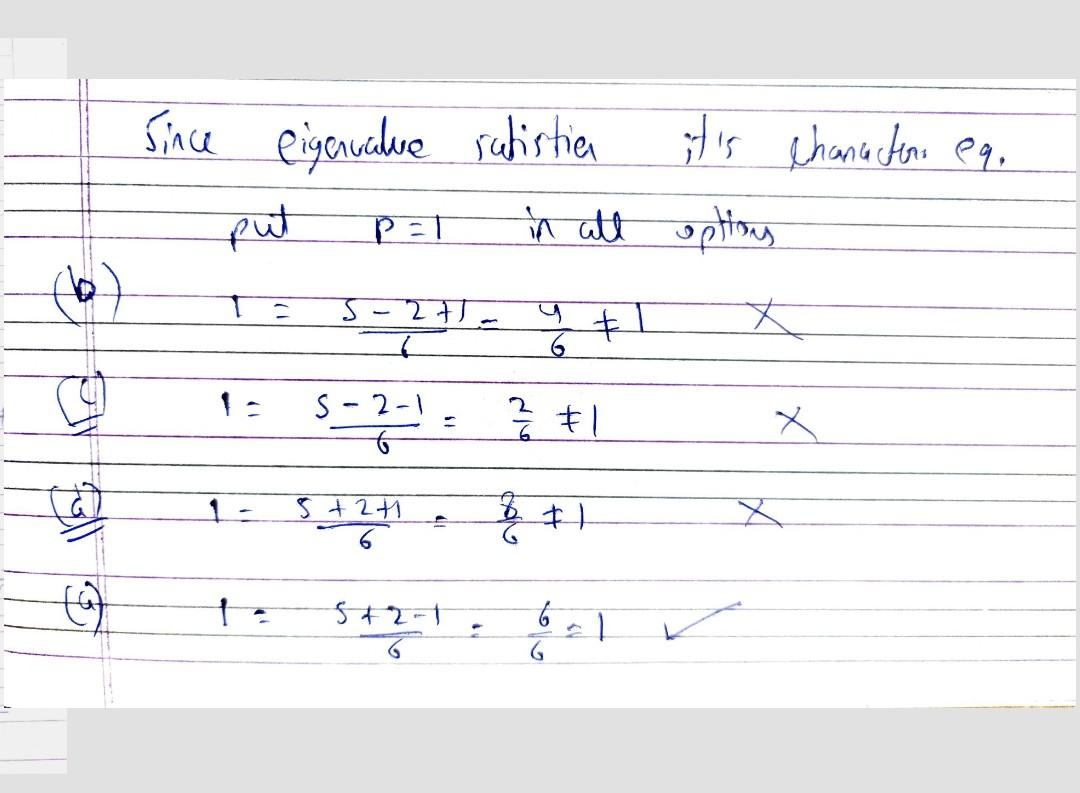 Since eigenvalue satisfies it's Characters eq.
put P = 1 in all options
(b) 1 = 5 - 2 + 1 / 6 = 4/6 ≠ 1 ×
(c) 1 = 5 - 2 - 1 / 6 = 2/6 ≠ 1 ×
(d) 1 = 5 + 2 + 1 / 6 = 8/6 ≠ 1 ×
(a) 1 = 5 + 2 - 1 / 6 = 6/6 = 1 ✓